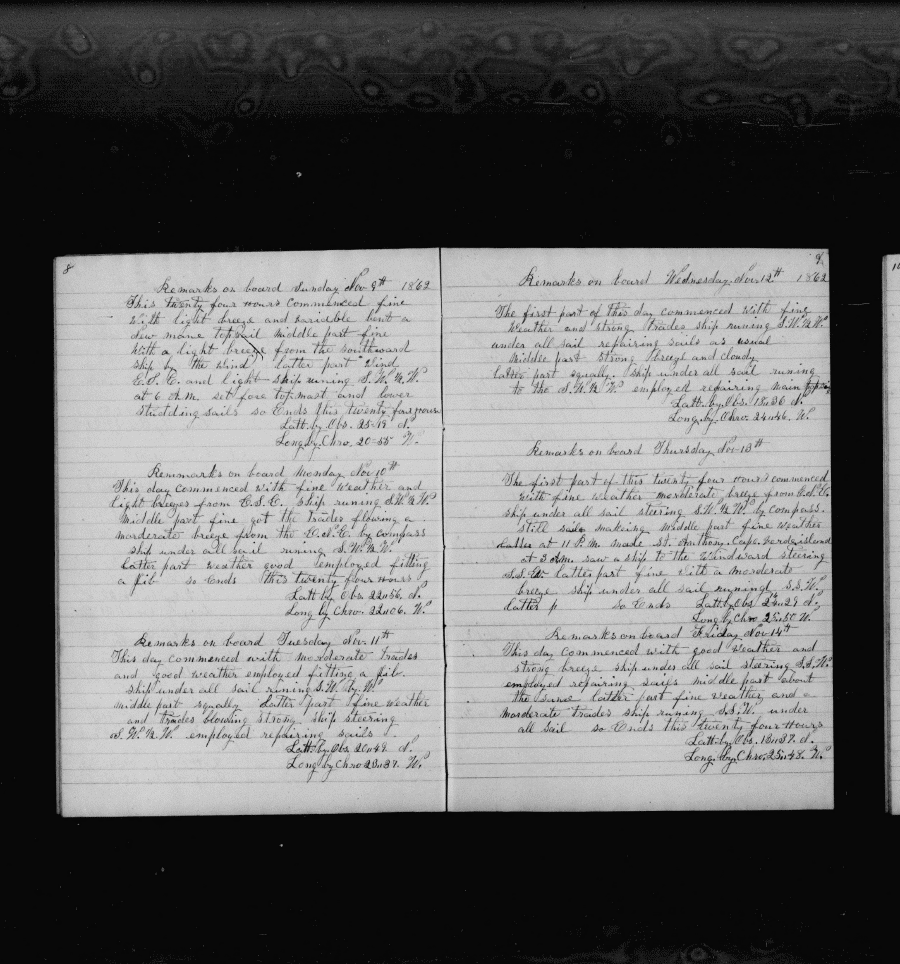 8
Remarks on board Sunday Nov 9th 1862
This twenty four hours commenced fine
with light breeze and variable bent a
new mane topsail middle part fine
with a light breeze from the southward
ship by the wind latter part wind
E.S.E. and light ship runing S.W.¼W.
at 6 A.M. set fore topmast and lower
studding sails so Ends this twenty four hours
Latt. by Obs. 25-19 N.
Long. by Chro. 20-55 W.
Remmarks on board Monday Nov 10th
This day commenced with fine weather and
light breezes from E.S.E. ship runing S.W.¼W.
middle part fine got the trades flowing a
morderate breeze from the E.N.E. by compass
ship under all sail runing S.W.¼W.
latter part weather good employed fitting
a jib so Ends this twenty four hours
Latt by Obs 22n56. N.
Long by Chro. 22n06. W.
Remarks on board Tuesday Nov 11th
This day commenced with morderate trades
and good weather employed fitting a jib.
ship under all sail runing S.W. by W.
middle part squally latter part fine weather
and trades blowing strong ship steering
S.W.¼W. employed repairing sails
Latt. by Obs. 20n49. N.
Long by Chro 23n37. W.
9
Remarks on board Wednesday Nov 12th 1862
The first part of this day commenced with fine
weather and strong trades ship runing S.W.¼W.
under all sail repairing sails as usual
middle part strong breeze and cloudy
latter part squally. ship under all sail runing
to the S.W.¼W. employed repairing main topsail
Latt. by Obs. 18n36 N.
Long. by Chro. 24n46. W.
Remarks on board Thursday Nov 13th
The first part of this twenty four hours commenced
with fine weather morderate breeze from E.N.E.
ship under all sail steering S.W.¼W. by compass.
still sails makeing middle part fine weather
at 11 P.M. made St. Anthony. Cape. verds island
at 3 A.M. saw a ship to the windward steering
S.S.W. latter part fine with a morderate
breeze ship under all sail runing S.S.W.
latter p so Ends Latt by Obs 29 N.
Long by Chro 25n50 W.
Remarks on board Friday Nov 14th
This day commenced with good weather and
strong breeze ship under all sail steering S.S.W.
employed repairing sails middle part about
the same latter part fine weather and a
morderate trades ship runing S.S.W. under
all sail so Ends this twenty four hours
Latt by Obs. 13n37. N.
Long. by Chro. 25n48. W.